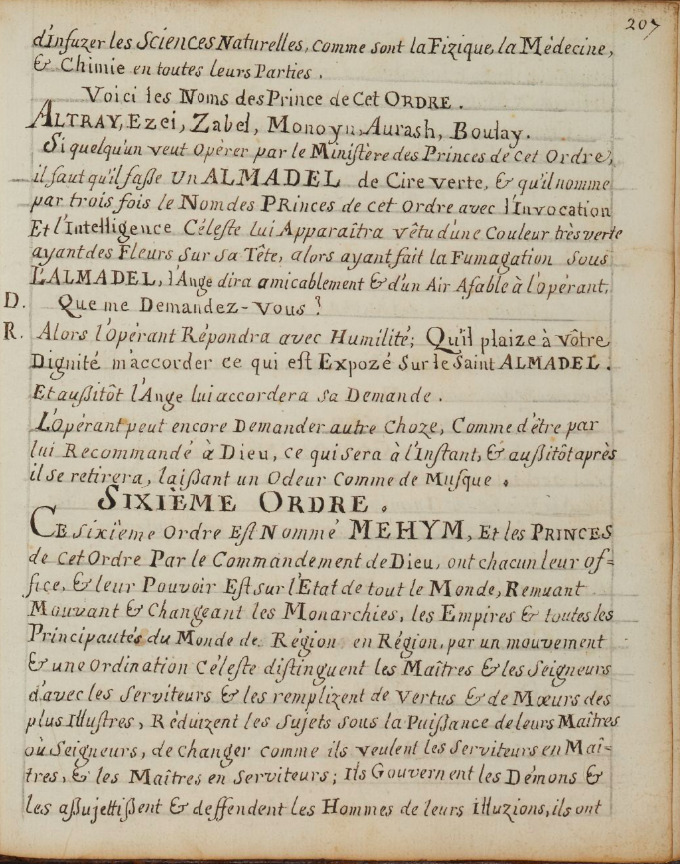 207
d'Infuzer les Sciences Naturelles, comme sont la Fizique, la Médecine,
& Chimie en toutes leurs Parties.
Voici les Noms des Prince de Cet ORDRE.
ALTRAY, Ezei, Zabel, Monoyn, Aurash, Boulay.
Si quelqu'un veut Opèrer par le Ministère des Princes de cet Ordre,
il faut qu'il faße un ALMADEL de Cire verte, & qu'il nomme
par trois fois le Nom des PRinces de cet Ordre avec l'Invocation
Et l'Intelligence Céleste lui Apparaîtra vêtu d'une Couleur très verte
ayant des Fleurs sur sa Tête, alors ayant fait la Fumagation sous
L'ALMADEL, l'Ange dira amicablement & d'un Air Afable à l'opérant,
D. Que me Demandez-Vous?
R. Alors l'Opérant Répondra avec Humilité; Qu'il plaize à vôtre
Dignité m'accorder ce qui est Expozé Sur le Saint ALMADEL.
Et außitôt l'Ange lui accordera sa Demande.
L'Opérant peut encore Demander autre Choze, Comme d'être par
lui Recommandé à Dieu, ce qui sera à l'Instant, & außitôt après
il se retirera, laißant un Odeur Comme de Musque.
SIXIÈME ORDRE.
CE sixieme Ordre Est Nommé MEHYM, Et les PRINCES
de cet Ordre Par le Commandement de Dieu, ont chacun leur of=
fice, & leur Pouvoir Est sur l'Etat de tout le Monde, Remuant
Mouvant & Changeant les Monarchies, les Empires & toutes les
Principautés du Monde de Région en Région, par un mouvement
& une Ordination Céleste distinguent les Maîtres & les Seigneurs
d'avec les Serviteurs & les remplizent de Vertus & de Mœurs des
plus Illustres, Réduizent les Sujets sous la Puißance de leurs Maîtres
où Seigneurs, de changer comme ils veulent les Serviteurs en Maî=
tres, & les Maîtres en Serviteurs; Ils Gouvernent les Démons &
les aßujettißent & deffendent les Hommes de leurs illuzions, ils ont